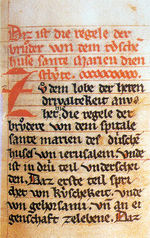 Daz ist die regele der
bruder von dem tůsche
huse sante Marien dien
In dem lobe der heren
drivaltekeit
het, die regele der
brůdere von dem spitale
sante marien des důsche
huses von ierusalem. unde
ist in dri teil underschei
den. Daz erste teil spri
chet von kůschekeit. unde
von gehorsami. un an ei
genschaft zelebene. Daz